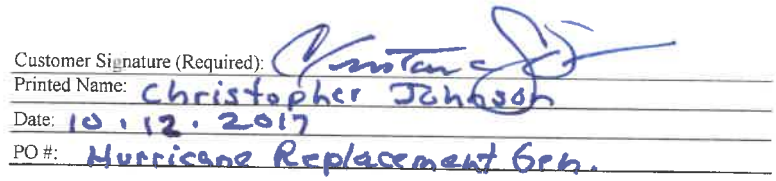 Customer Signature (Required):
Printed Name: Christopher Johnson
Date: 10.12.2017
PO #: Hurricane Replacement Gen.